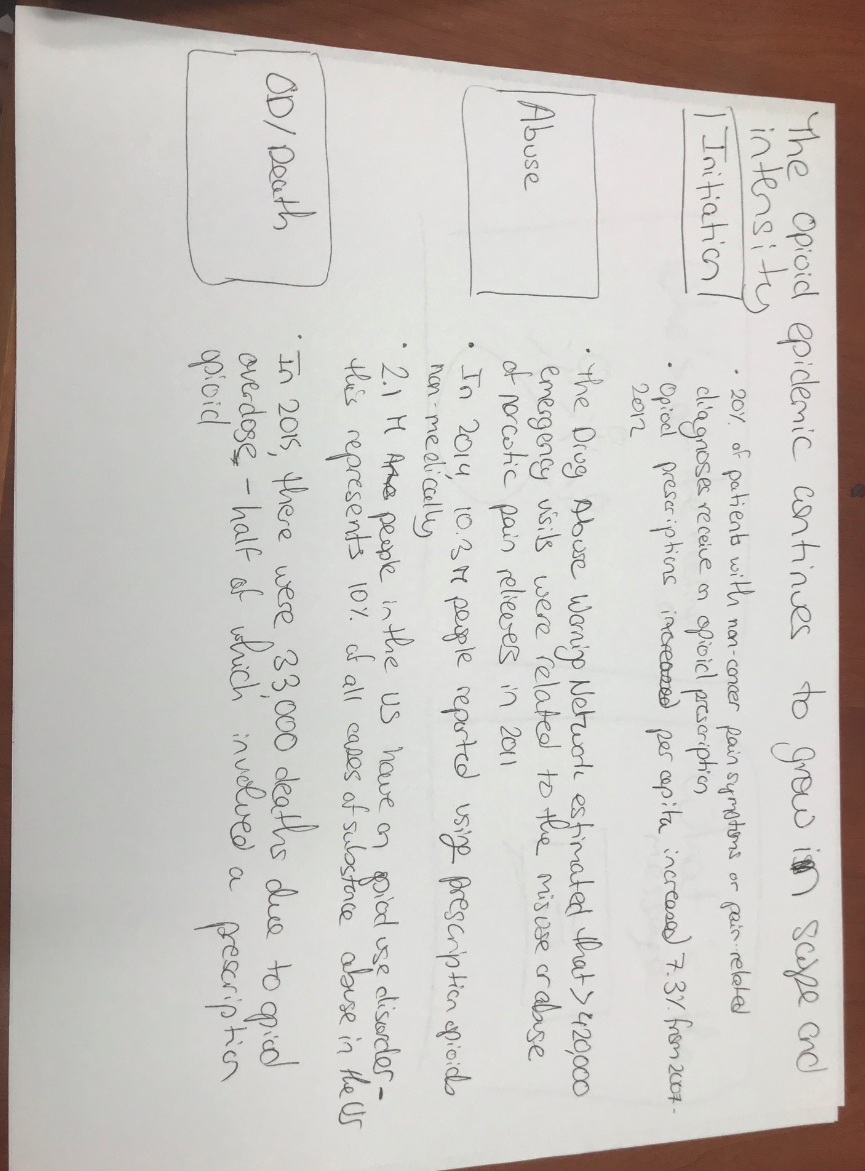 The opioid epidemic continues to grow in scope and
intensity
Initiation
• 20% of patients with non-cancer pain symptoms or pain-related
diagnoses receive an opioid prescription
• Opioid prescriptions increased per capita increased 7.3% from 2007-
2012
Abuse
• The Drug Abuse Warning Network estimated that > 420,000
emergency visits were related to the misuse or abuse
of narcotic pain relievers in 2011
• In 2014, 10.3 M people reported using prescription opioids
non-medically
• 2.1 M people in the US have an opioid use disorder -
this represents 10% of all cases of substance abuse in the US
OD/Death
• In 2015, there were 33,000 deaths due to opioid
overdose - half of which involved a prescription
opioid